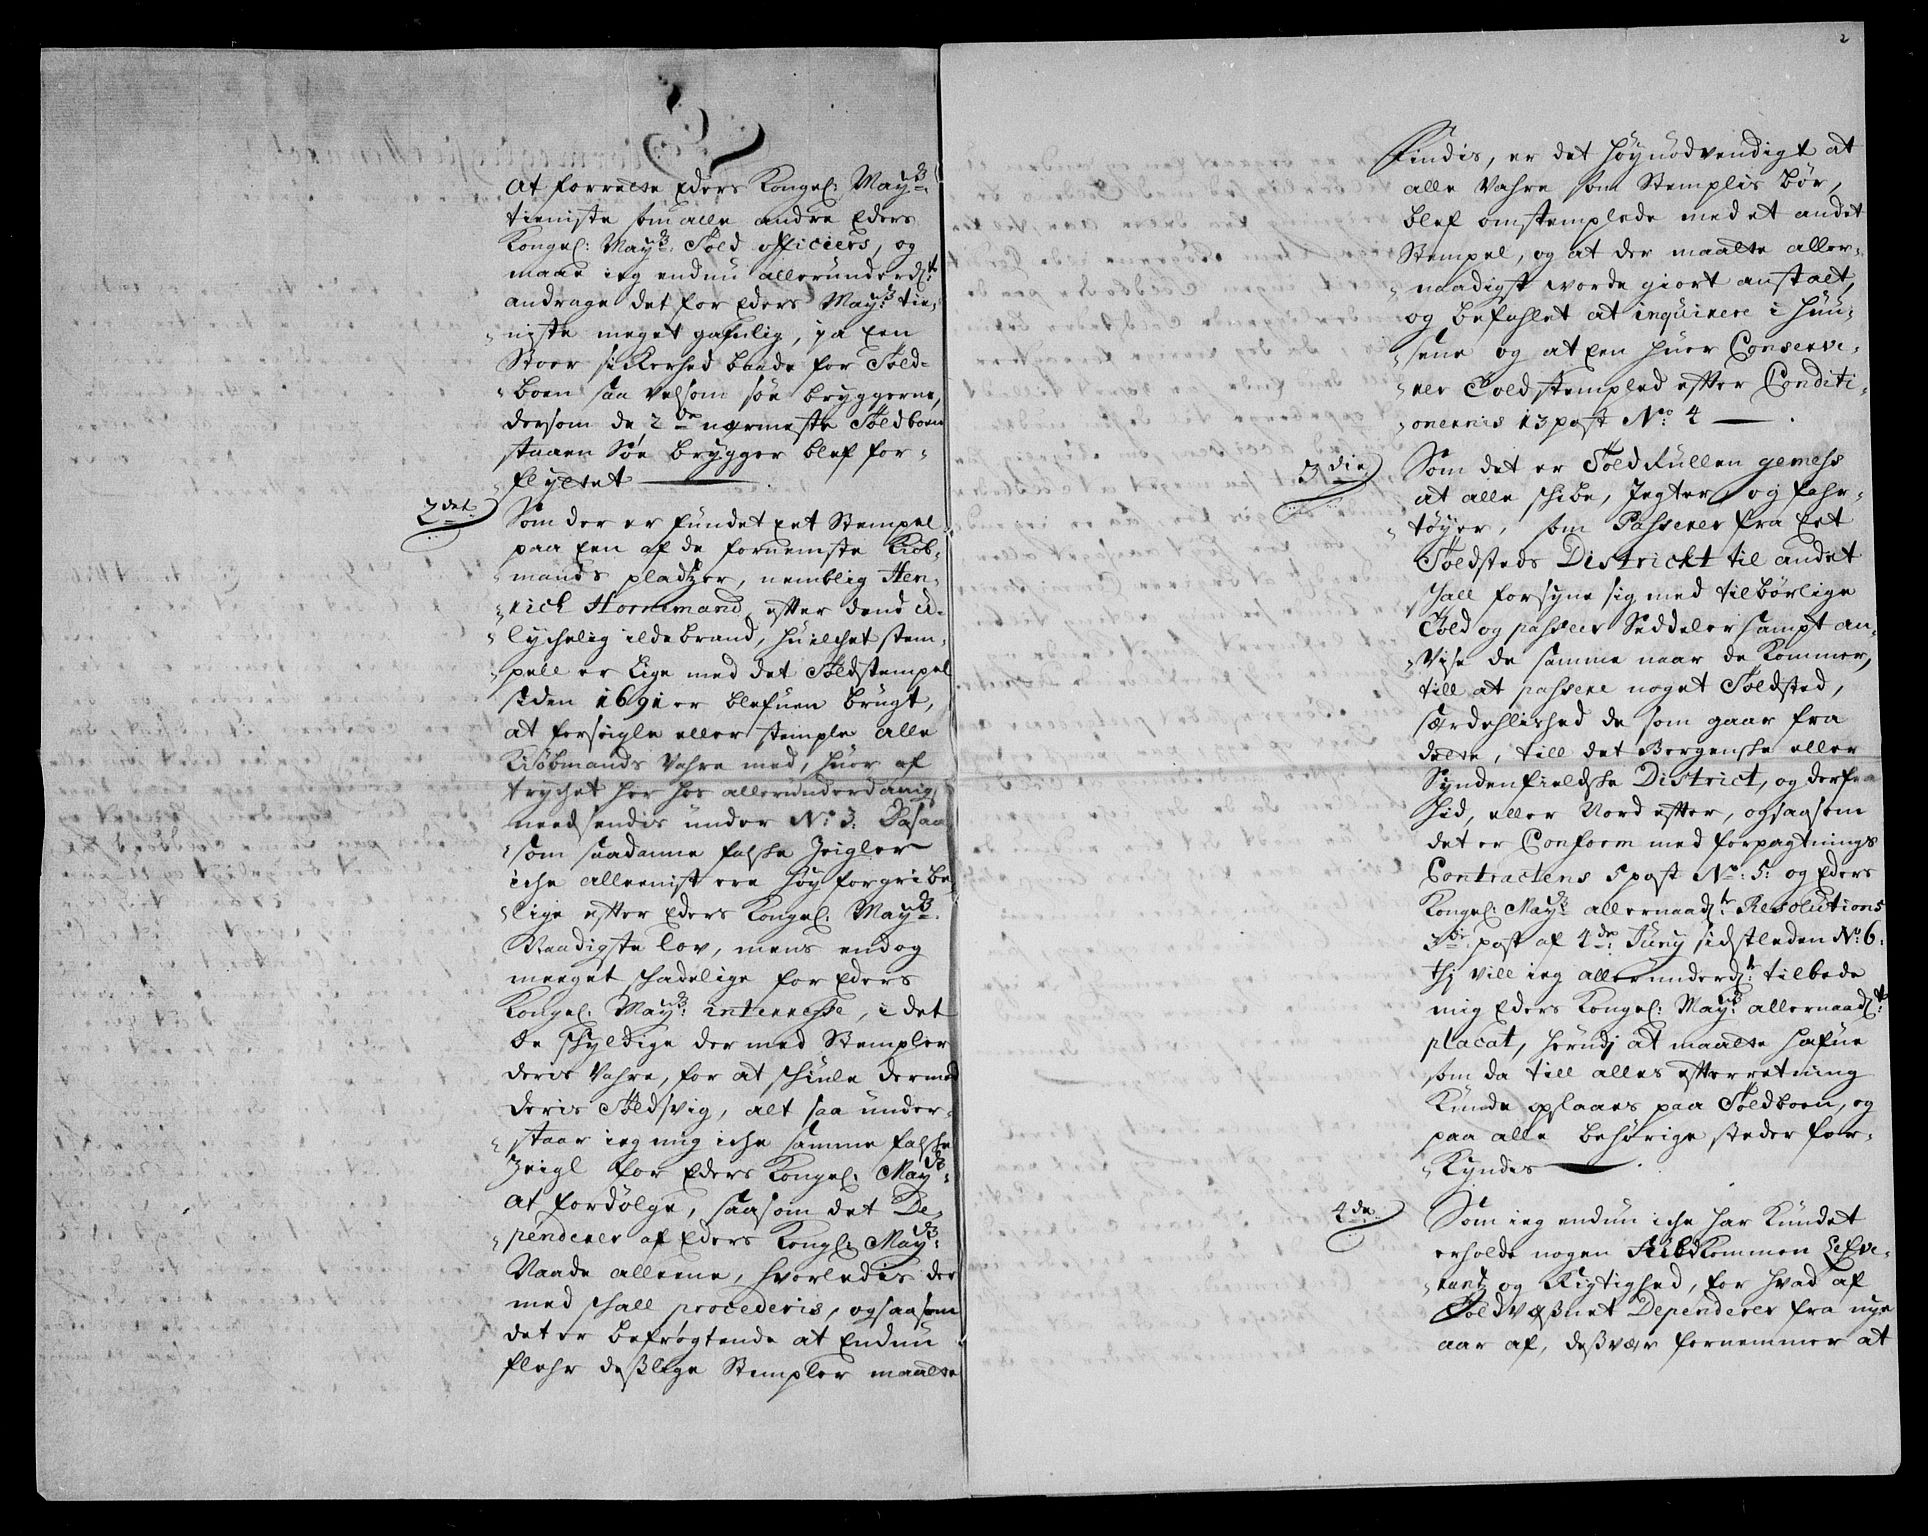 at forrette Eders Kongel: May:ts
tieniste som alle andre Eders
Kongel: May:ts Told officiers, og
maae ieg endnu allerunderd:t
andrage det for Eders May:ts tie-
niste meget gafnlig, ja Een
Stoer sikkerhed baade for Told-
boen saa velsom søe bryggerne,
dersom de 2de nærmeste Toldboen
staaen Søe brygger blef for-
flyttet
2det
Som der er fundet Eet Stempel
paa Een af de fornemste Kiøb-
mands pladtzer, nemblig Hen-
rich Hornemand, efter dend u-
lychelig ildebrand, huilchet stem-
pell er Lige med det Toldstempel
siden 1691 er blefuen brugt,
at forseigle eller stemple alle
Kiøbmands Vahre med, huor af
trychet her hos allerunderdanig
needsendis under No: 3: Da saa
som saadanne falske Zeigler
iche alleenist ere høy forgribe-
lige efter Eders Kongel: May:ts
Naadigste lov, mens endog
meeget skadelige for Eders
Kongel: May:ts interresse, i det
de skyldige der med Stempler
deris Vahre, for at skiule dermed
deris Toldsvig, alt saa under-
staar ieg mig iche samme falske
Zeigl for Eders Kongel: May:ts
at fordølge, saasom det De-
penderer af Eders Kongl: May:ts
Naade alleene, hvorledis der
med skall procederis, og saasom
det er befrøgtende at Endnu
flehr deßlige Stempler maatte
2
findis, er det høynødvendigt at
alle Vahre som Stemplis bør,
blef omstemplede med et andet
Stempel, og at der maatte aller-
naadigst worde giort anstalt,
og befahlet at inquirere i Huu-
sene og at Een huer Conserve-
rer Toldstempled efter Conditi-
onernis 13 post No: 4
3die
Som det er Told Rullen gemehs
at alle skibe, Jegter og fahr-
tøyer, som Passerer fra Eet
Toldsteds Districkt til andet
skall forsyne sig med tilbørlige
Told og passeer Seddeler sampt an-
vise de samme naar de kommer,
till at passere noget Toldsted,
særdehlished de som gaar fra
dette, till det Bergenske eller
Syndenfieldske District, og derfra
hid, eller Nord efter, og saasom
det er Conform med forpagtnings
Contractens 5 post No: 5: og Eders
Kongel: May:ts allernaad:te Resolutions
3die post af 4de Juny sidstleden No: 6:
thj vill ieg allerunderd:t tilbede
mig Eders Kongel: May:ts allernaad:te
placat, herudj at maatte hafue
som da till alles efterretning
kunde opslaaes paa Toldboen, og
paa alle behørige steder for-
kyndis
4de
Som ieg endnu iche har kundet
erholde nogen fuldkommen Lefve-
rantz og Rigtighed, for hvad af
Toldvæßnet Dependerer fra nye
aar af, deßvær fornemmer at